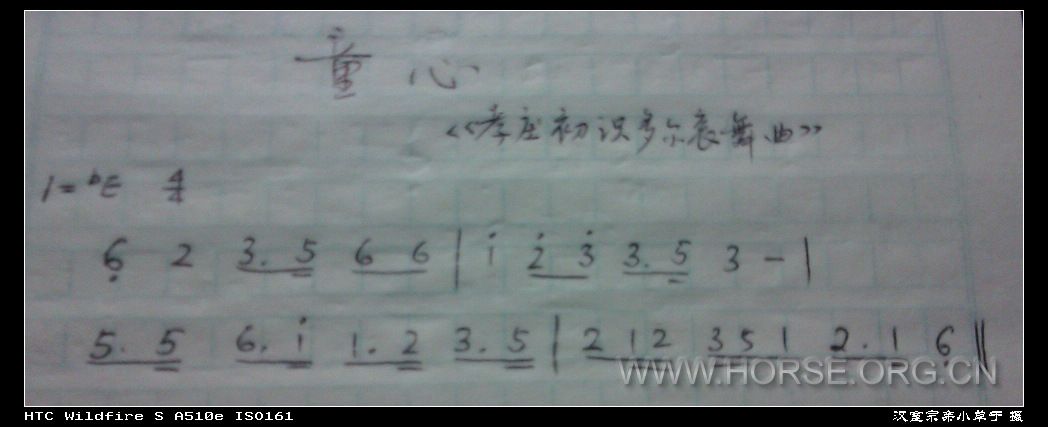 童心
<<孝庄初识多尔衮舞曲>>
1=ᵇE 4/4
6̣ 2 3. 5 6 6 | i̇ 2̇ 3̇ 3. 5 3 - |
5. 5 6. i̇ 1. 2 3. 5 | 2 1 2 3 5 1 2. 1 6̣ ‖
WWW.HORSE.ORG.CN
HTC Wildfire S A510e ISO161 汉室宗亲小草于 摄